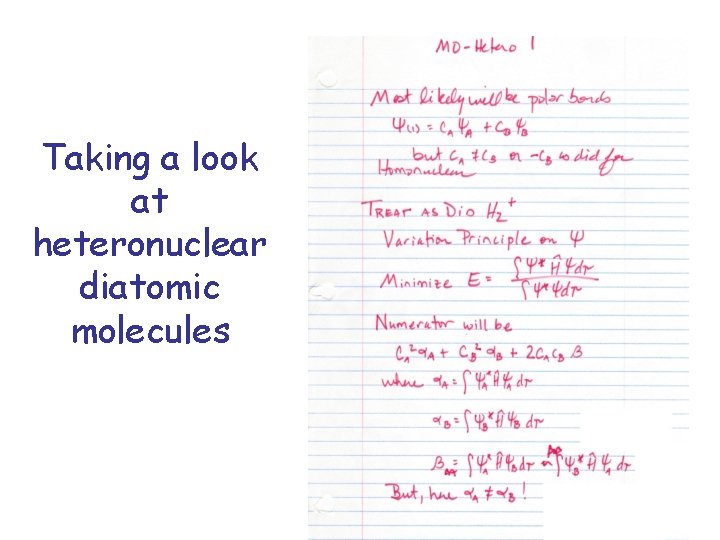 Taking a look
at
heteronuclear
diatomic
molecules
MO-Hetero 1
Most likely will be polar bonds
Ψ(1) = C_A Ψ_A + C_B Ψ_B
but C_A ≠ C_B or -C_B as did for
Homonuclear
TREAT AS DID H₂⁺
Variation Principle on Ψ
Minimize E = ∫Ψ* Ĥ Ψdτ / ∫Ψ*Ψdτ
Numerator will be
C_A² α_A + C_B² α_B + 2C_A C_B β
where α_A = ∫Ψ_A* Ĥ Ψ_A dτ
α_B = ∫Ψ_B* Ĥ Ψ_B dτ
β = ∫Ψ_A* Ĥ Ψ_B dτ or ∫Ψ_B* Ĥ Ψ_A dτ
But, here α_A ≠ α_B !